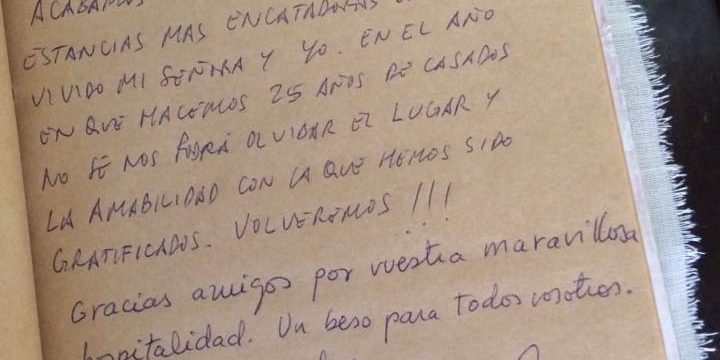 ACABAMOS
ESTANCIAS MAS ENCATADORAS
VIVIDO MI SEÑORA Y YO. EN EL AÑO
EN QUE HACEMOS 25 AÑOS DE CASADOS
NO SE NOS PODRÁ OLVIDAR EL LUGAR Y
LA AMABILIDAD CON LA QUE HEMOS SIDO
GRATIFICADOS. VOLVEREMOS !!!
Gracias amigos por vuestra maravillosa
hospitalidad. Un beso para todos vosotros.